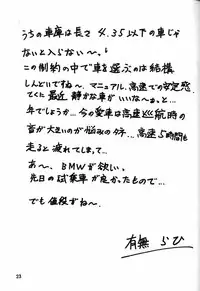 うちの車庫は長さ4.35以下の車じゃ
ないと入らない〜。
この制約の中で車を選ぶのは結構
しんどいですね〜。マニュアル、高速での安定感
てくに最近静かな車がいいな〜ぁ。と…
年でしょうか…今の愛車は高速巡航時の
音が大きいのが悩みのタネ…高速5時間も
走ると疲れてしまって…
あ〜、BMWが欲しい。
先日の試乗車が良かったもので…
でも値段がね〜
有無らひ
23